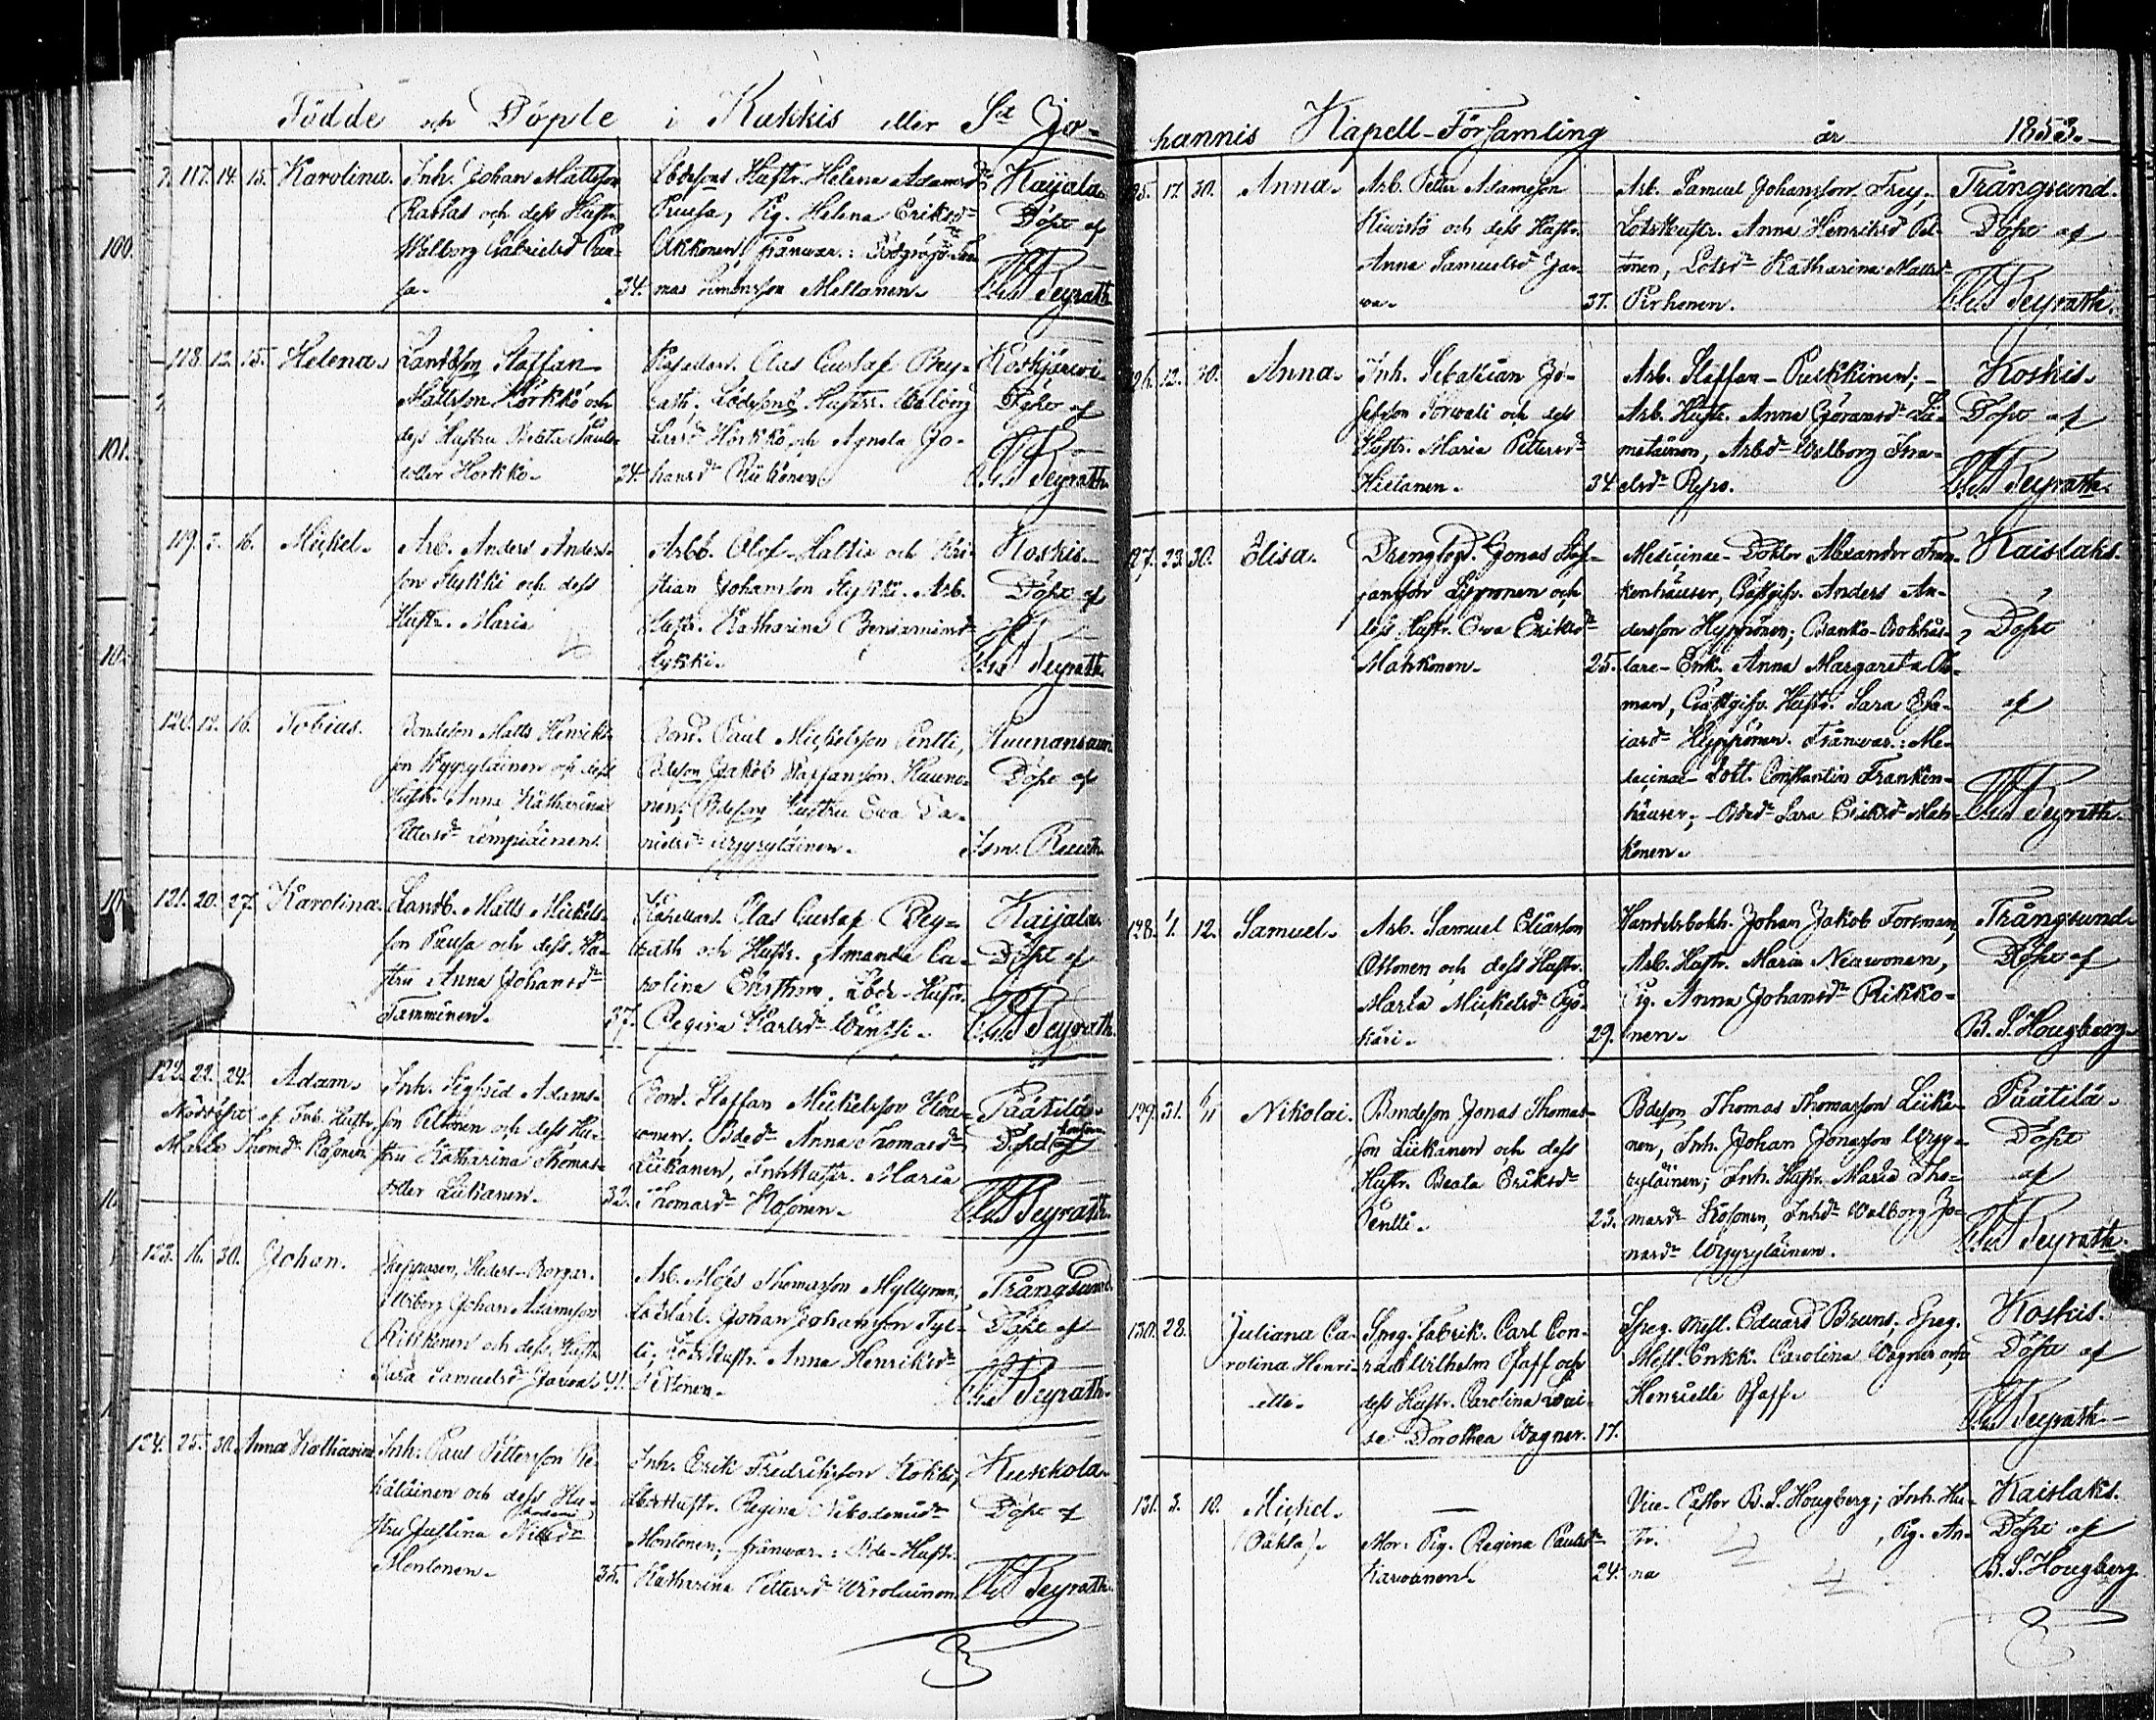 Födde och Döpte i Kukkis eller S:t Jo-
100.
101.
7. 117. 14. 15. Karolina.
Inh. Johan Mattsson
Rastas och dess Hustr.
Walborg Gabrielsd Puu-
sa. 34.
Hustr. Helena Adamsdr
Puusa, Pig. Helena Eriksdr
Akkonen, frånvar.:
mas Simonsson Mettanen.
Kaijala.
Döpt af
Reyrath
118. 12. 15. Helena.
Landbson Staffan
Mattsson Hörkkö och
dess Hustru Beata Pauls-
dotter Horkko. 34.
Kapellan. Clas Gustaf Rey-
rath. Lbdesons Hustr. Walborg
Larsdr Hörkkö och Agneta Jo-
hansdr Riikonen.
Koskijärwi.
Döpt af
Reyrath.
119. 7. 16. Michel.
Arb. Anders Anders-
son Hykki och dess
Hustr. Maria
Arbb. Olof Mattis och Kri-
stian Johansson Hykki. Arb.
Hustr. Katharina Benjaminsdr
Hykki.
Koskis.
Döpt af
Reyrath.
120. 12. 16. Tobias.
Bondeson Matts Henriks-
son Wyyryläinen och dess
Hustr. Anna Katharina
Pettersdr Lempiäinen.
Bond. Paul Michelsson Pentti,
Bdeson Jakob Staffansson Huuno-
nen; Bdeson Hustru Ewa Da-
nielsdr Wyyryläinen.
Huunansaari
Döpt af
Ism. Reuth.
121. 20. 27. Karolina.
Landb. Matts Mickels-
son Puusa och dess Hu-
stru Anna Johansdr
Tamminen. 37.
Kapellan. Clas Gustaf Rey-
rath och Hustr. Amanda Ca-
rolina Enethun. Lbde-Hustr.
Regina Karlsdr Wentti.
Kaijala.
Döpt af
Reyrath.
122. 22. 24. Adam.
Nöddöpt af Inh. Hustr.
Maria Thomdr Kosonen
Inh. Sigfrid Adams-
son Peltonen och dess Hu-
stru Katharina Thomas-
dotter Liikanen. 32.
Bond. Staffan Mickelsson
Bdedr Anna Thomasdr
Liikanen, Inh Hustr. Maria
Thomasdr Kosonen.
Päätilä.
Döpt af
Reyrath.
123. 16. 30. Johan.
Wiborg Johan Adamsson
Riikkonen och dess Hustr
Sara Samuelsd Jarwa. 41.
Arb. Mojs Thomasson Myllynen,
Johan Johansson Tyl-
li; Lots Hustr. Anna Henriksdr
Peltonen.
Trångsund.
Döpt af
Reyrath.
124. 25. 30. Anna Katharina
Inh. Paul Pettersson Re-
käläinen och dess Hu-
stru Justina
Montonen. 35.
Inh. Erik Fredriksson Kokki,
Hustr. Regina Nikodemusdr
Montonen; frånvar.: Bde-Hustr.
Katharina Pettersdr Wirolainen.
Kukkola.
Döpt af
Reyrath.
hannis Kapell-Församling år 1853.
125. 17. 30. Anna.
Arb. Petter Adamsson
Kiwistö och dess Hustr.
Anna Samuelsdr Jar-
wa. 37.
Arb. Samuel Johansson Frey;
Lots Hustr. Anna Henriksd Pel-
tonen, Lotsdr Katharina Mattsdr
Pirhonen.
Trångsund.
Döpt af
Reyrath.
126. 12. 30. Anna.
Inh. Sebastian Jo-
sefsson Torwali och dess
Hustr. Maria Pettersdr
Hietanen. 34
Arb. Staffan Pukkinen;
Arb. Hustr. Anna Göransdr Lä-
metäinen, Arbdr Walborg Isra-
elsdr Repo.
Koskis.
Döpt af
Reyrath.
127. 23. 30. Elisa.
Drengfogd. Jonas Stef-
fansson Lyyronen och
dess Hustr. Ewa Eriksdr
Mahkonen. 25.
Medicinae-Doktor Alexander Fran-
kenhäuser, Gästgifv. Anders An-
dersson Hyppönen; Banko-Bokhål-
lare-Enk. Anna Margareta
man, Gästgifv. Hustr. Sara Esa-
iasdr Hyppönen. Frånvar.: Me-
dicinae-Dokt. Constantin Franken-
häuser; Bdedr Sara Eriksdr Mah-
konen.
Kaislaks.
Döpt
af
Reyrath.
128. 1. 12. Samuel.
Arb. Samuel Eliasson
Ottonen och dess Hustr.
Maria Mickelsdr Pyö-
käri. 29.
Handelsbokh. Johan Jakob Forsman,
Arb. Hustr. Maria Niawonen,
Pig. Anna Johansdr Rikko-
nen.
Trångsund.
Döpt af
B. S. Hougberg.
129. 31. 6/11 Nikolai.
Bondeson Jonas Thomas-
son Liikanen och dess
Hustr. Beata Eriksdr
Pentti. 23.
Bdeson Thomas Thomasson Liika-
nen, Inh. Johan Jonasson Wyy-
ryläinen; Inh. Hustr. Maria Tho-
masdr Kosonen, Inhdr Walborg Jo-
nasdr Wyyryläinen.
Päätilä.
Döpt
af
Reyrath.
130. 28. Juliana Ca-
rolina Henri-
ette.
Speg. Fabrik. Carl Con-
rad Wilhelm Pfaff och
dess Hustr. Carolina Loui-
se Dorothea Wagner. 17.
Speg. Mest. Eduard Bruns, Speg.
Mest. Enkk. Carolina Wagner och
Henriette Pfaff.
Koskis.
Döpt af
Reyrath
131. 3. 10. Michel.
(Oäkta).
—
Mor: Pig. Regina Paulsdr
Karwanen. 24.
Vice-Pastor B. S. Hougberg; Inh. Hu-
str. , Pig. An-
na
Kaislaks.
Döpt af
B. S. Hougberg